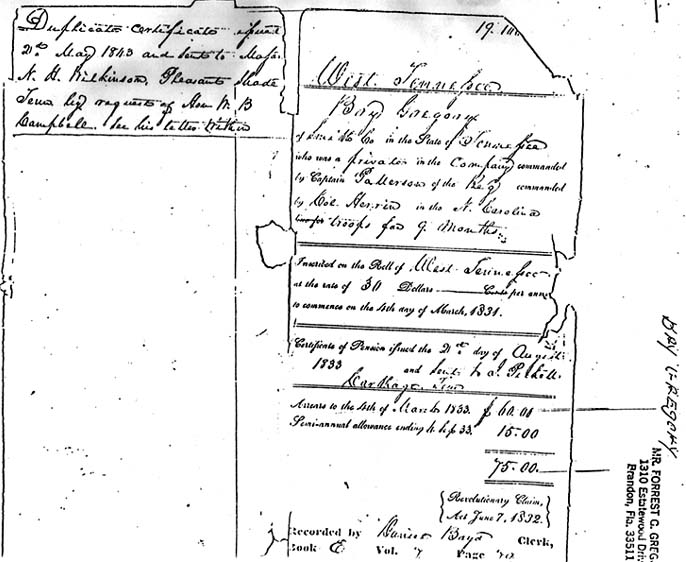 Duplicate certificate issued
21st May 1843 and sent to Majr
N. H. Wilkinson, Pleasant Shade
Tenn by request of Hon W. B
Campbell. See his letter within
19.
West Tennessee
Bry Gregory
of Smith Co in the State of Tennessee
who was a private in the Company commanded
by Captain Patterson of the Reg commanded
by Col. Herrin in the N. Carolina
troops for 9 months
Inscribed on the Roll of West Tennessee
at the rate of 30 Dollars Cents per annu
to commence on the 4th day of March, 1831.
Certificate of Pension issued the 21st day of August
1833 and sent to
Carthage Ten
Arrears to the 4th of March 1833. $ 60.00
Semi-annual allowance ending 4 Sep 33. 15.00
75.00
Revolutionary Claim,
Act June 7, 1832.
Recorded by Daniel Boyd Clerk,
Book E Vol. 7 Page
BRY GREGORY
MR. FORREST C. GREG
1310 Estatewood Driv
Brandon, Fla. 33511